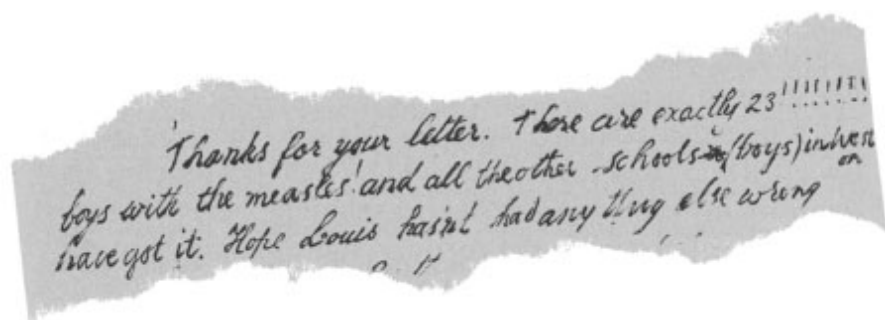 Thanks for your letter. There are exactly 23 !!!!!!!!!
boys with the measles! and all the other schools (boys) in West on
have got it. Hope Louis hasn't had any thing else wrong